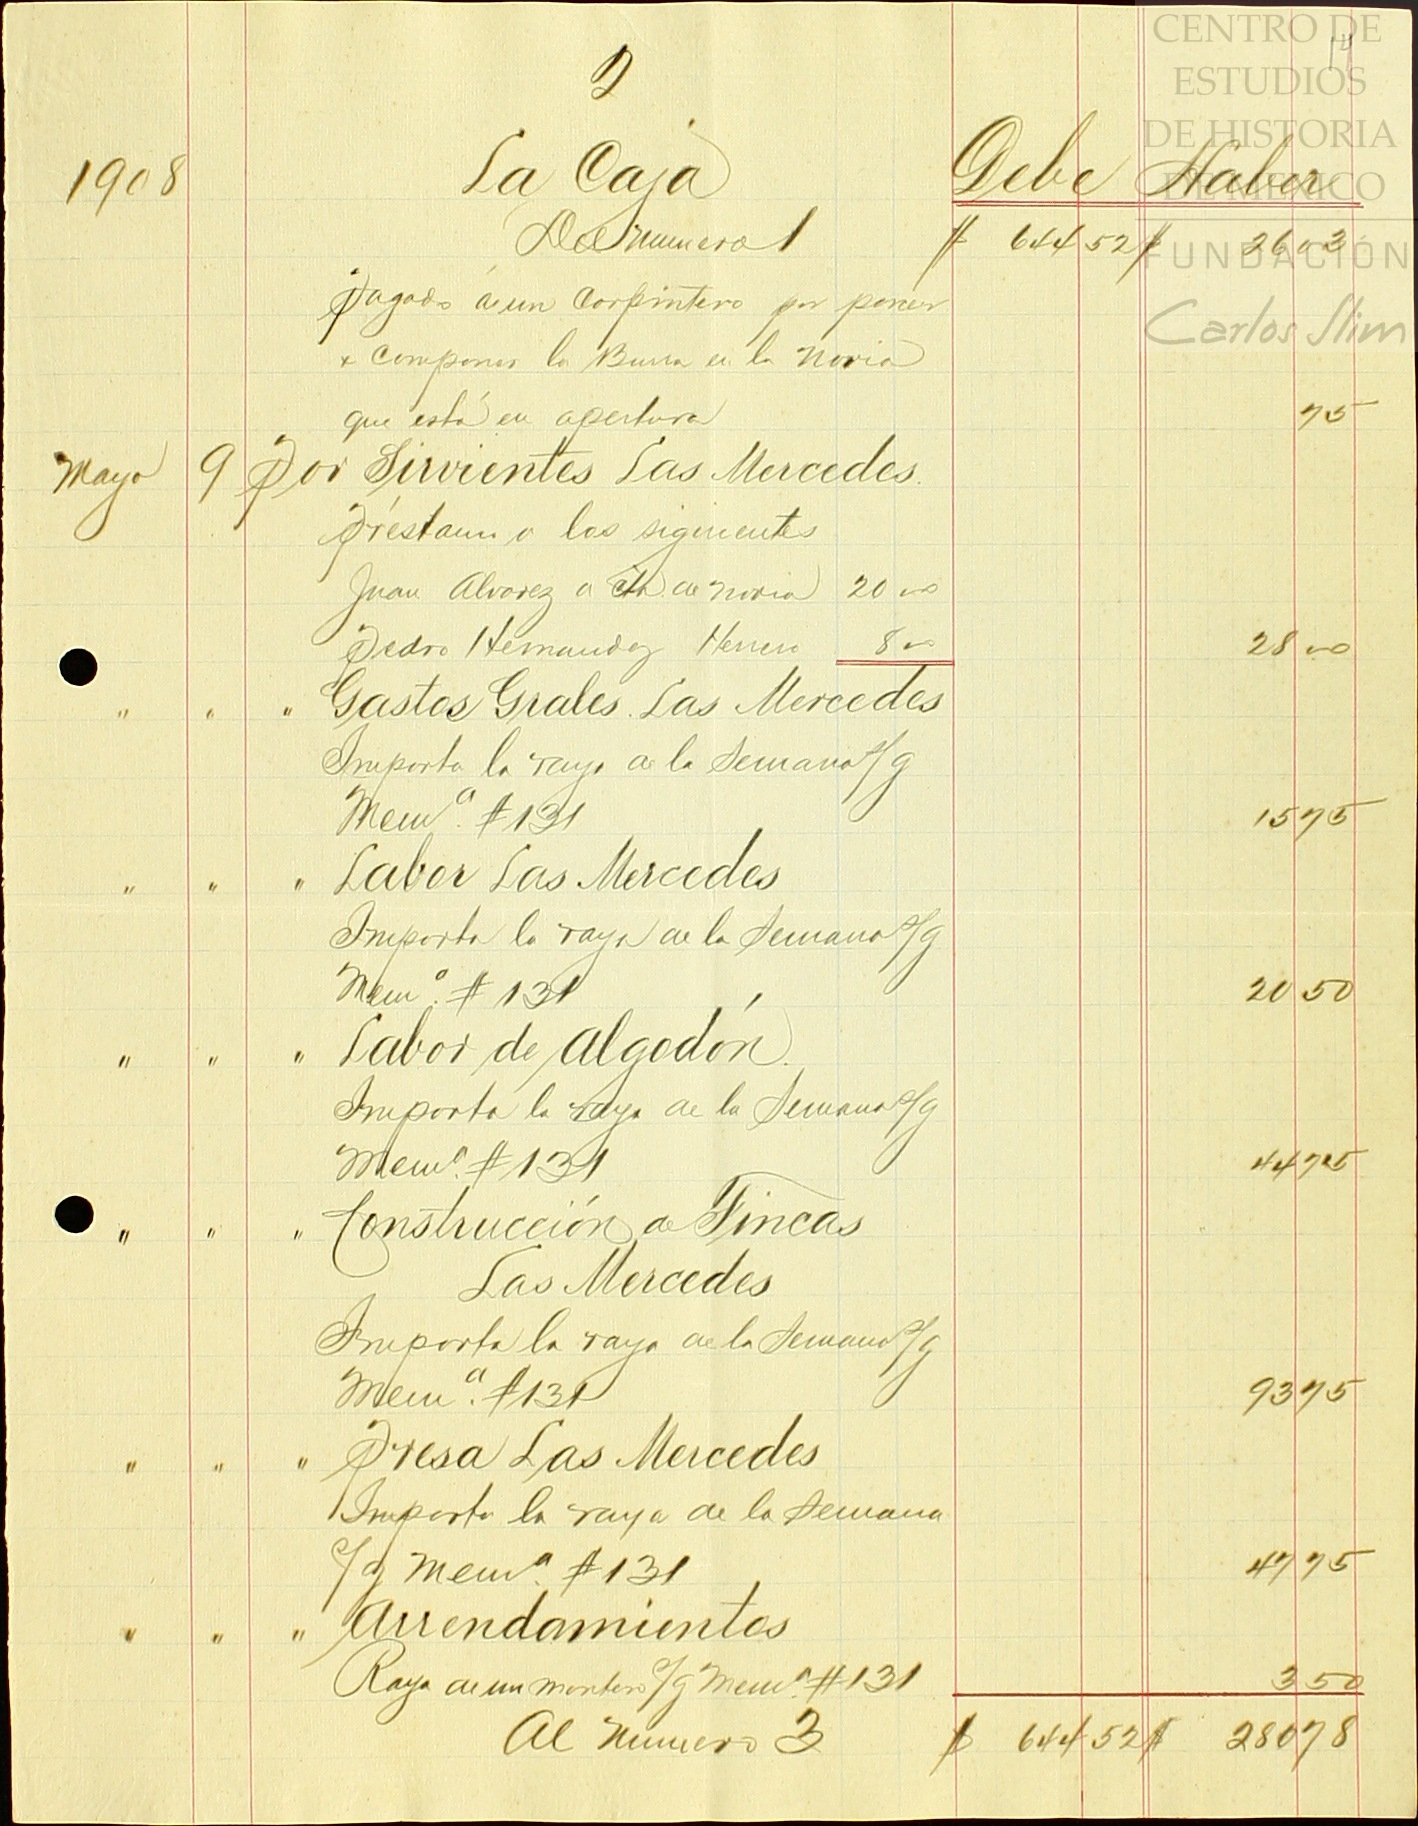 2
1908 La Caja Debe Haber
Del numero 1 $ 644 52 $ 26 03
Pagado á un Carpintero por poner
y componer la Burra en la Noria
que está en apertura 75
Mayo 9 Por Sirvientes Las Mercedes.
Préstamo a los siguientes
Juan Alvarez a cta. de noria 20 00
Pedro Hernandez Herrero 8 00 28 00
" " " Gastos Grales. Las Mercedes
Importa la raya de la Semana s/g
Mem.a #131 15 75
" " " Labor Las Mercedes
Importa la raya de la Semana s/g
Mem.a #131 20 50
" " " Labor de Algodón.
Importa la raya de la Semana s/g
Mem.a #131 44 75
" " " Construcción de Fincas
Las Mercedes
Importa la raya de la Semana s/g
Mem.a #131 93 75
" " " Presa Las Mercedes
Importa la raya de la Semana
s/g Mem.a #131 47 75
" " " Arrendamientos
Raya de un montero s/g Mem.a #131 3 50
Al Numero 3 $ 644 52 $ 280 78
CENTRO DE
ESTUDIOS
DE HISTORIA
DE MEXICO
FUNDACIÓN
Carlos Slim